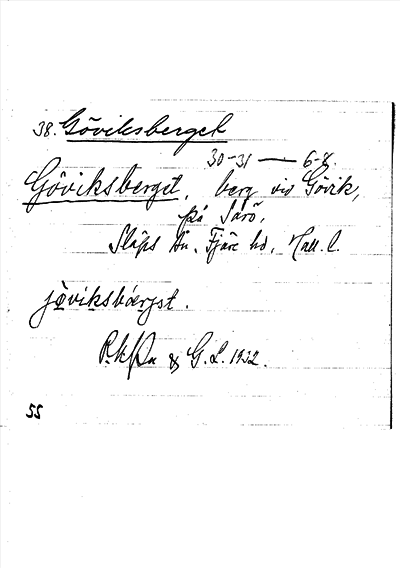 38. Göviksberget
30-31 — 6-8.
Göviksberget, berg vid Gövik,
på Särö,
Släps sn. Fjäre hd, Hall. l.
jöviksbærjət.
& G. L. 1932.
55